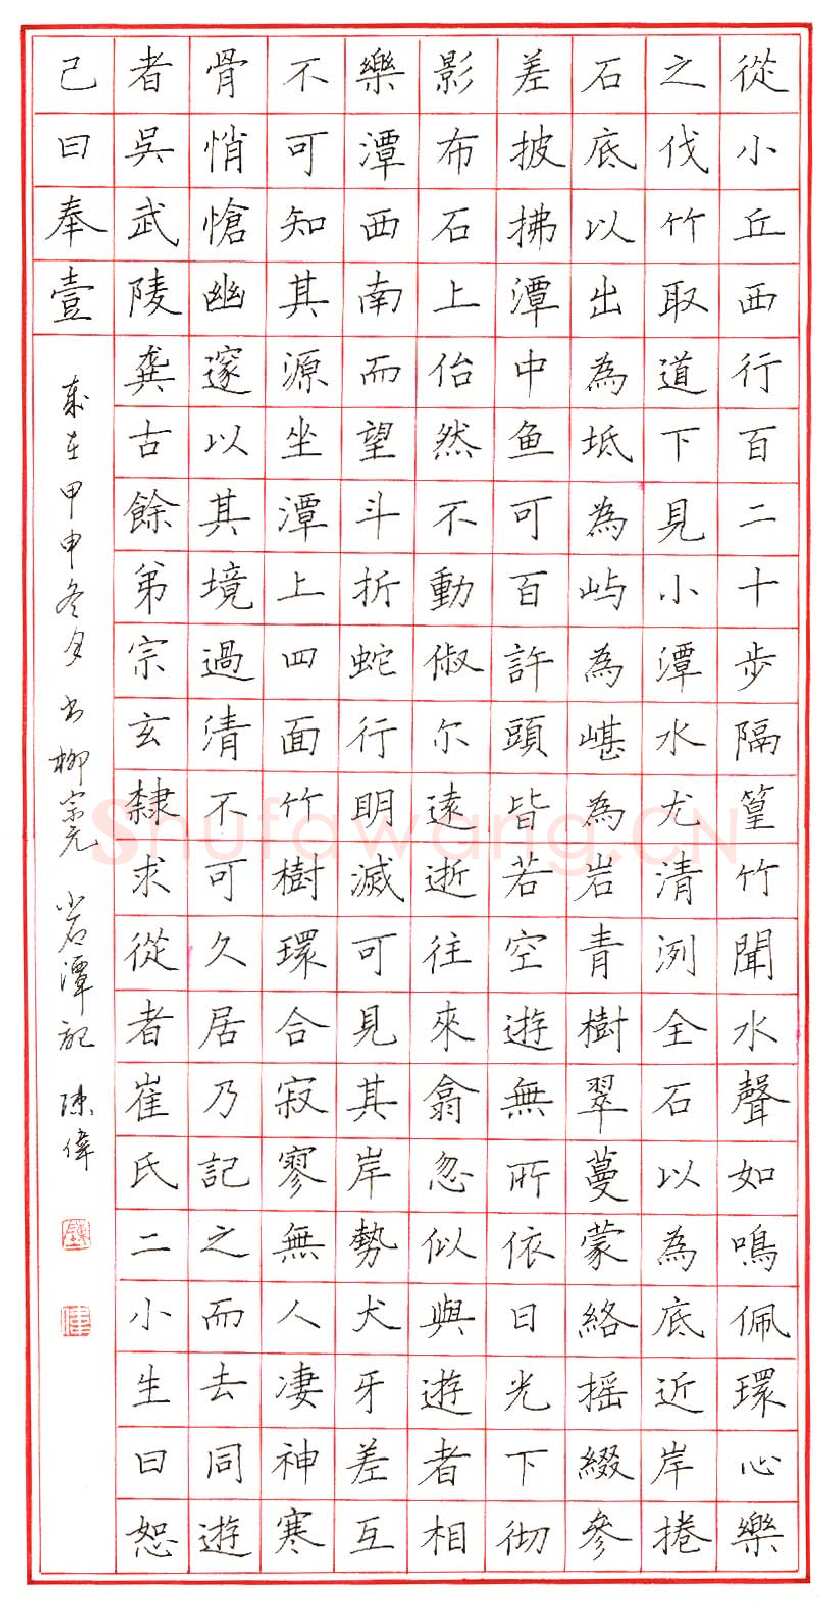 從小丘西行百二十步隔篁竹聞水聲如鳴佩環心樂
之伐竹取道下見小潭水尤清洌全石以為底近岸捲
石底以出為坻為屿為嵁為岩青樹翠蔓蒙絡摇綴參
差披拂潭中鱼可百許頭皆若空遊無所依日光下彻
影布石上佁然不動俶尔遠逝往來翕忽似與遊者相
樂潭西南而望斗折蛇行明滅可見其岸勢犬牙差互
不可知其源坐潭上四面竹樹環合寂寥無人凄神寒
骨悄愴幽邃以其境過清不可久居乃記之而去同遊
者吳武陵龔古餘弟宗玄隸求從者崔氏二小生曰恕
己曰奉壹
歲在甲申冬月书柳宗元小石潭記 陳偉
Shufawang.CN